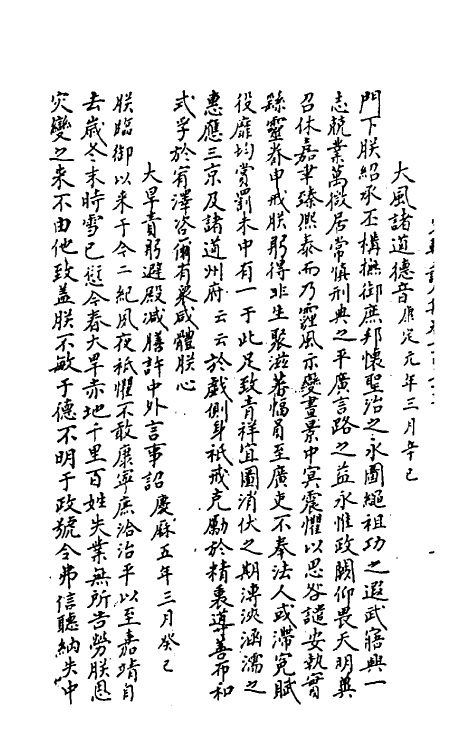 大風諸道德音康定元年三月辛巳
門下朕紹承丕構撫御庶邦懷聖治之永圖繩祖功之遐武寤興一
志兢業萬微居常慎刑典之平廣言路之益永惟政闕仰畏天明冀
召休嘉聿臻熙泰而乃霾風示變晝景中冥震懼以思咎譴安執實
繇靈眷申戒朕躬得非生聚滋蕃幅員至廣吏不奉法人或滯冤賦
役靡均賞罰未中有一于此足致眚祥宜圖消伏之期溥洪涵濡之
惠應三京及諸道州府云云於戲側身祇戒克勵於精裏導善布和
式孚於宥澤咨爾有衆咸體朕心
大旱責躬避殿減膳許中外言事詔慶厤五年三月癸巳
朕臨御以来于今二紀夙夜祇懼不敢康寧庶洽治平以至嘉靖自
去歲冬末時雪已愆今春大旱赤地千里百姓失業無所告勞朕思
灾變之来不由他致盖朕不敏于德不明于政號令弗信聽納失中